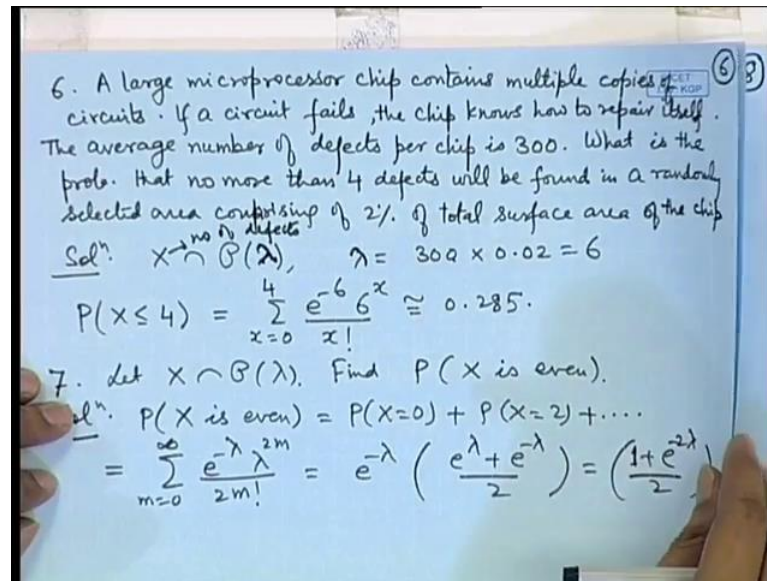 6. A large microprocessor chip contains multiple copies of
circuits. If a circuit fails, the chip knows how to repair itself.
The average number of defects per chip is 300. What is the
prob. that no more than 4 defects will be found in a randomly
selected area comprising of 2% of total surface area of the chip
Solⁿ. X → no of defects ∩ P(λ), λ = 300 × 0.02 = 6
P(X ≤ 4) = Σ_{x=0}^{4} e^{-6} 6^x / x! ≅ 0.285.
7. Let X ∩ P(λ). Find P(X is even).
Solⁿ. P(X is even) = P(X=0) + P(X=2) + ....
= Σ_{m=0}^{∞} e^{-λ} λ^{2m} / 2m! = e^{-λ} ( (e^{λ} + e^{-λ}) / 2 ) = ( (1 + e^{-2λ}) / 2 )
6
8
KGP